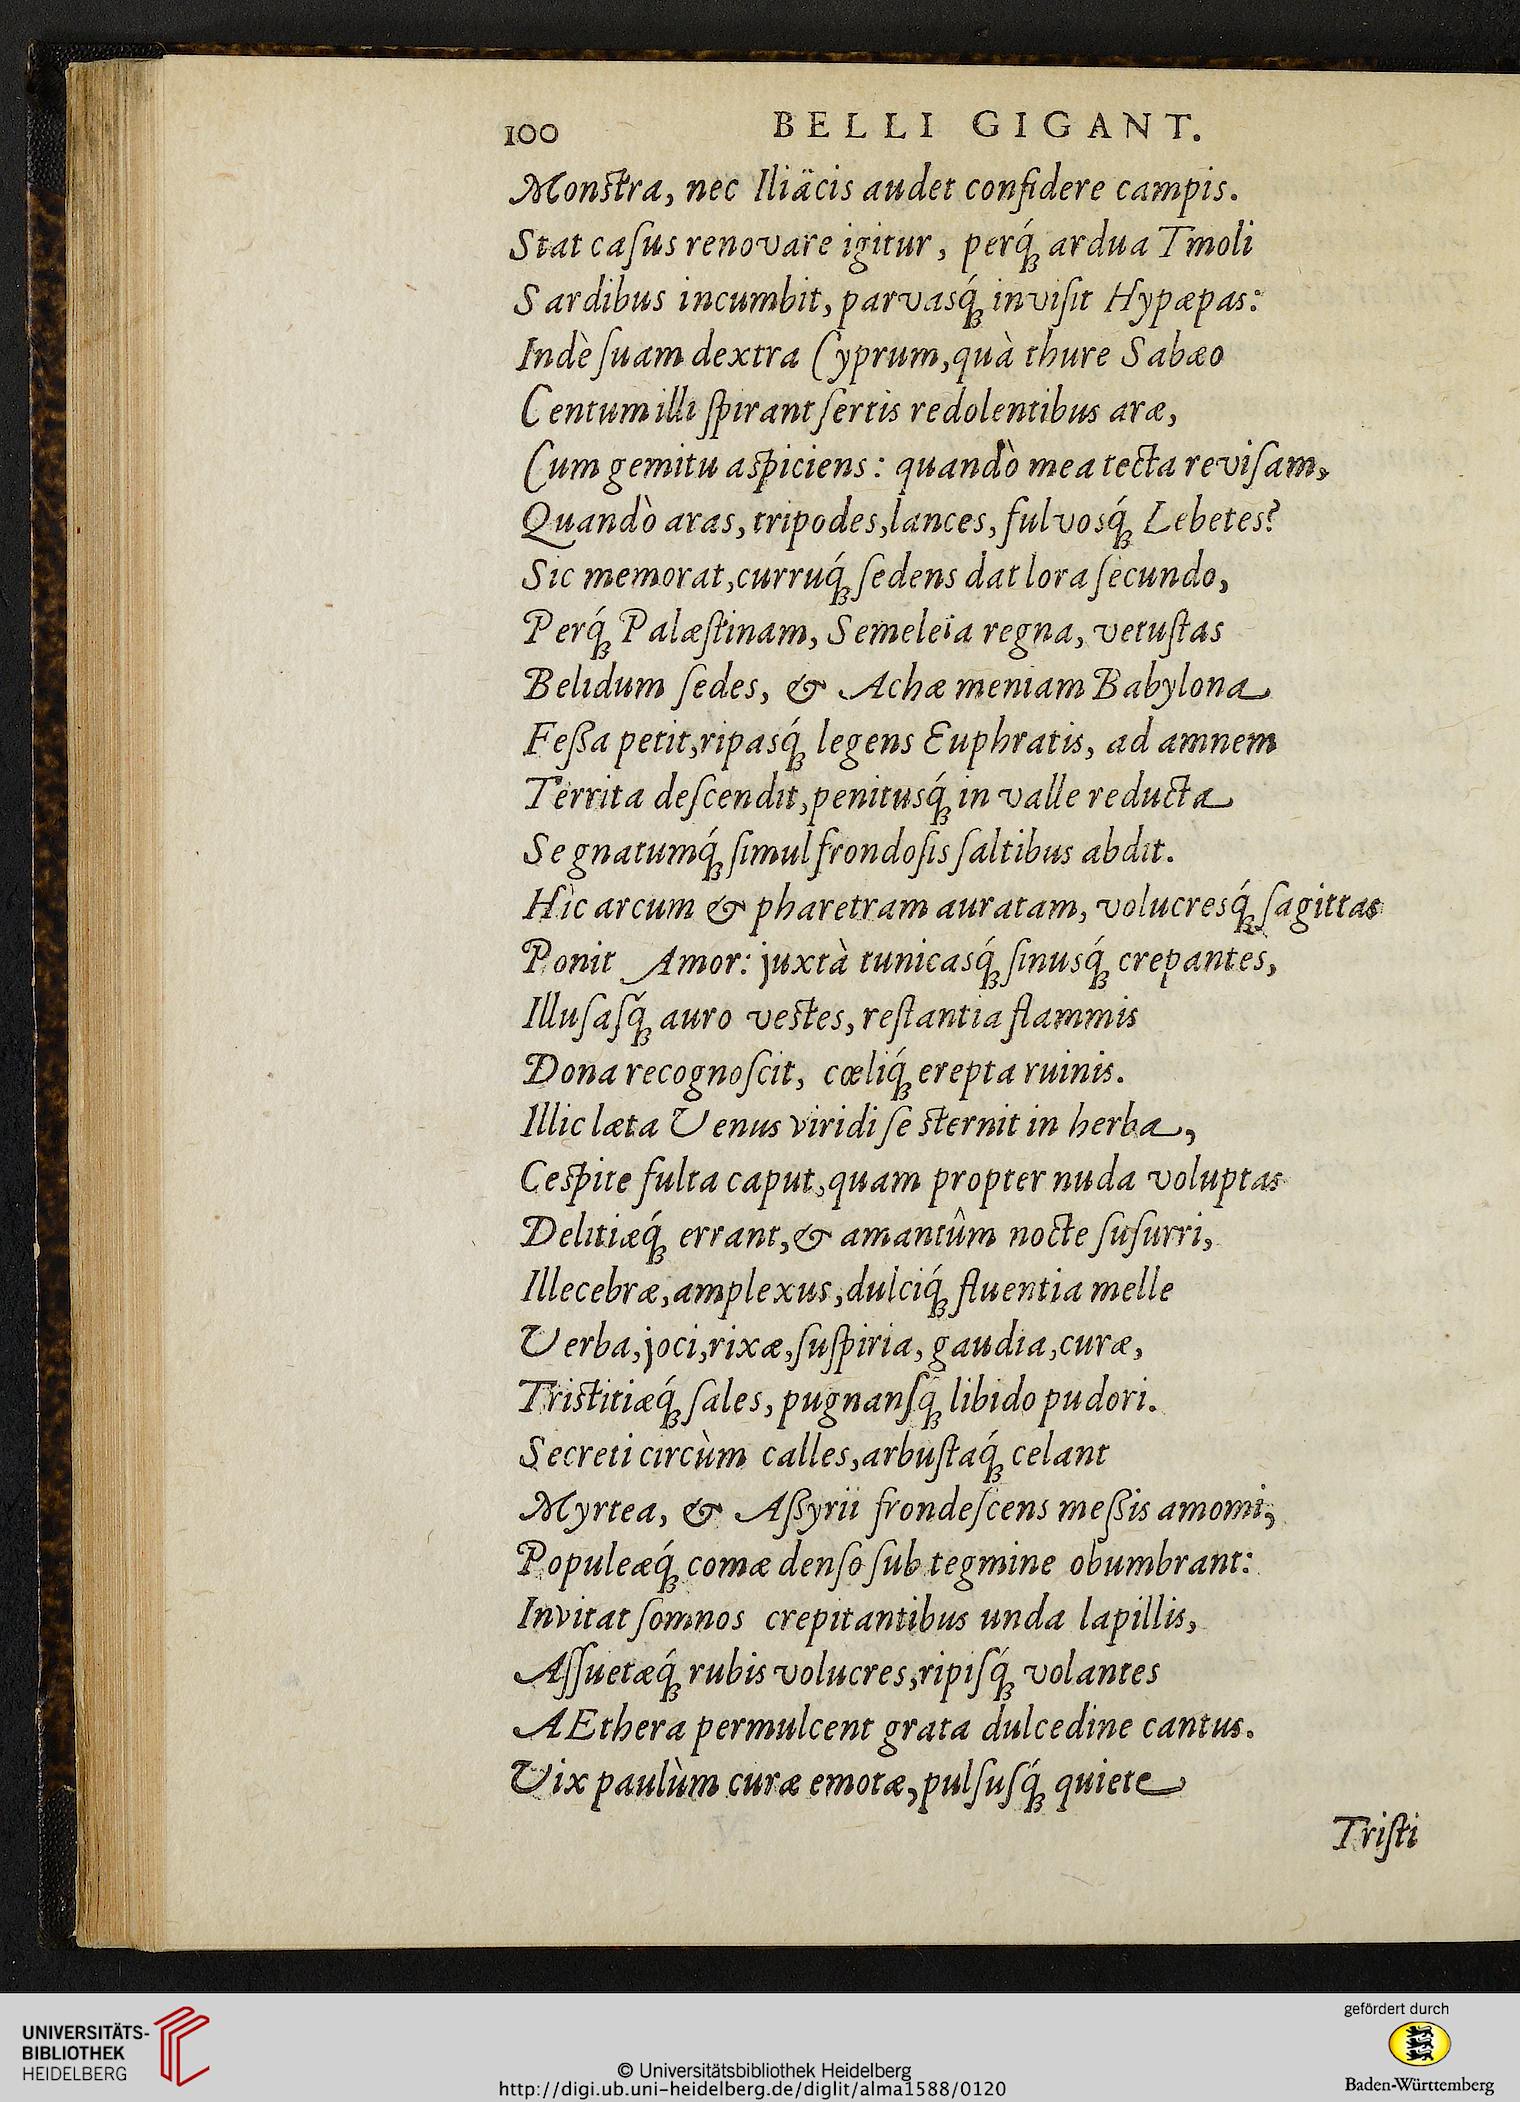 100 BELLI GIGANT.
Monstra, nec Iliäcis audet confidere campis.
Stat caſus renovare igitur, perq́; ardua Tmoli
Sardibus incumbit, parvasq́; inviſit Hypæpas:
Indè ſuam dextra Cyprum, quà thure Sabæo
Centum illi ſpirant ſertis redolentibus aræ,
Cum gemitu aspiciens: quandò mea tecta reviſam,
Quandò aras, tripodes, lances, fulvosq́; Lebetes?
Sic memorat, curruq́; ſedens dat lora ſecundo,
Perq́; Palæſtinam, Semeleia regna, vetuſtas
Belidum ſedes, & Achæmeniam Babylona
Feßa petit, ripasq́; legens Euphratis, ad amnem
Territa deſcendit, penitusq́; in valle reducta
Se gnatumq́; ſimul frondoſis ſaltibus abdit.
Hìc arcum & pharetram auratam, volucresq́; ſagittas
Ponit Amor: juxtà tunicasq́; ſinusq́; crepantes,
Illuſaſq́; auro vestes, reſtantia flammis
Dona recognoſcit, cœliq́; erepta ruinis.
Illic læta Venus viridi ſe sternit in herba,
Cespite fulta caput, quam propter nuda voluptas
Delitiæq́; errant, & amantûm nocte ſuſurri,
Illecebræ, amplexus, dulciq́; fluentia melle
Verba, joci, rixæ, ſuſpiria, gaudia, curæ,
Tristitiæq́; ſales, pugnanſq́; libido pudori.
Secreti circùm calles, arbuſtaq́; celant
Myrtea, & Aßyrii frondeſcens meßis amomi,
Populeæq́; comæ denſo ſub tegmine obumbrant:
Invitat ſomnos crepitantibus unda lapillis,
Aſſuetæq́; rubis volucres, ripiſq́; volantes
AEthera permulcent grata dulcedine cantus.
Vix paulùm curæ emotæ, pulſuſq́; quiete
Triſti
UNIVERSITÄTS-
BIBLIOTHEK
HEIDELBERG
© Universitätsbibliothek Heidelberg
http://digi.ub.uni-heidelberg.de/diglit/alma1588/0120
gefördert durch
Baden-Württemberg